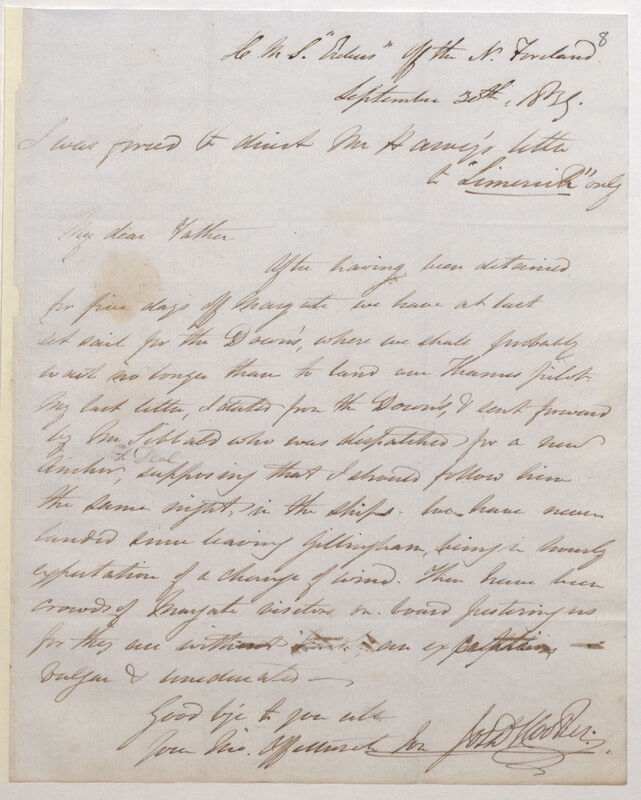 8
H M S. "Erebus" Off the N. Foreland.
September 30th, 1839.
I was forced to direct Mr Harvey's letter
to "Limerick" only
My dear Father
After having been detained
for five days off Margate we have at last
set sail for the Down's, where we shall probably
wait no longer than to land our Thames pilot
My last letter, I dated from the Down's, & sent forward
by Mr Sibbald who was despatched for a new
to Deal
Anchor, supposing that I should follow him
the same night, in the ships. We have never
landed since leaving Gillingham, being in hourly
expectation of a change of wind. There have been
crowds of Margate visitors on board pestering us
for they are without an exception
vulgar & uneducated —
Good bye to you all
Your Affectionate Son Josh D Hooker.